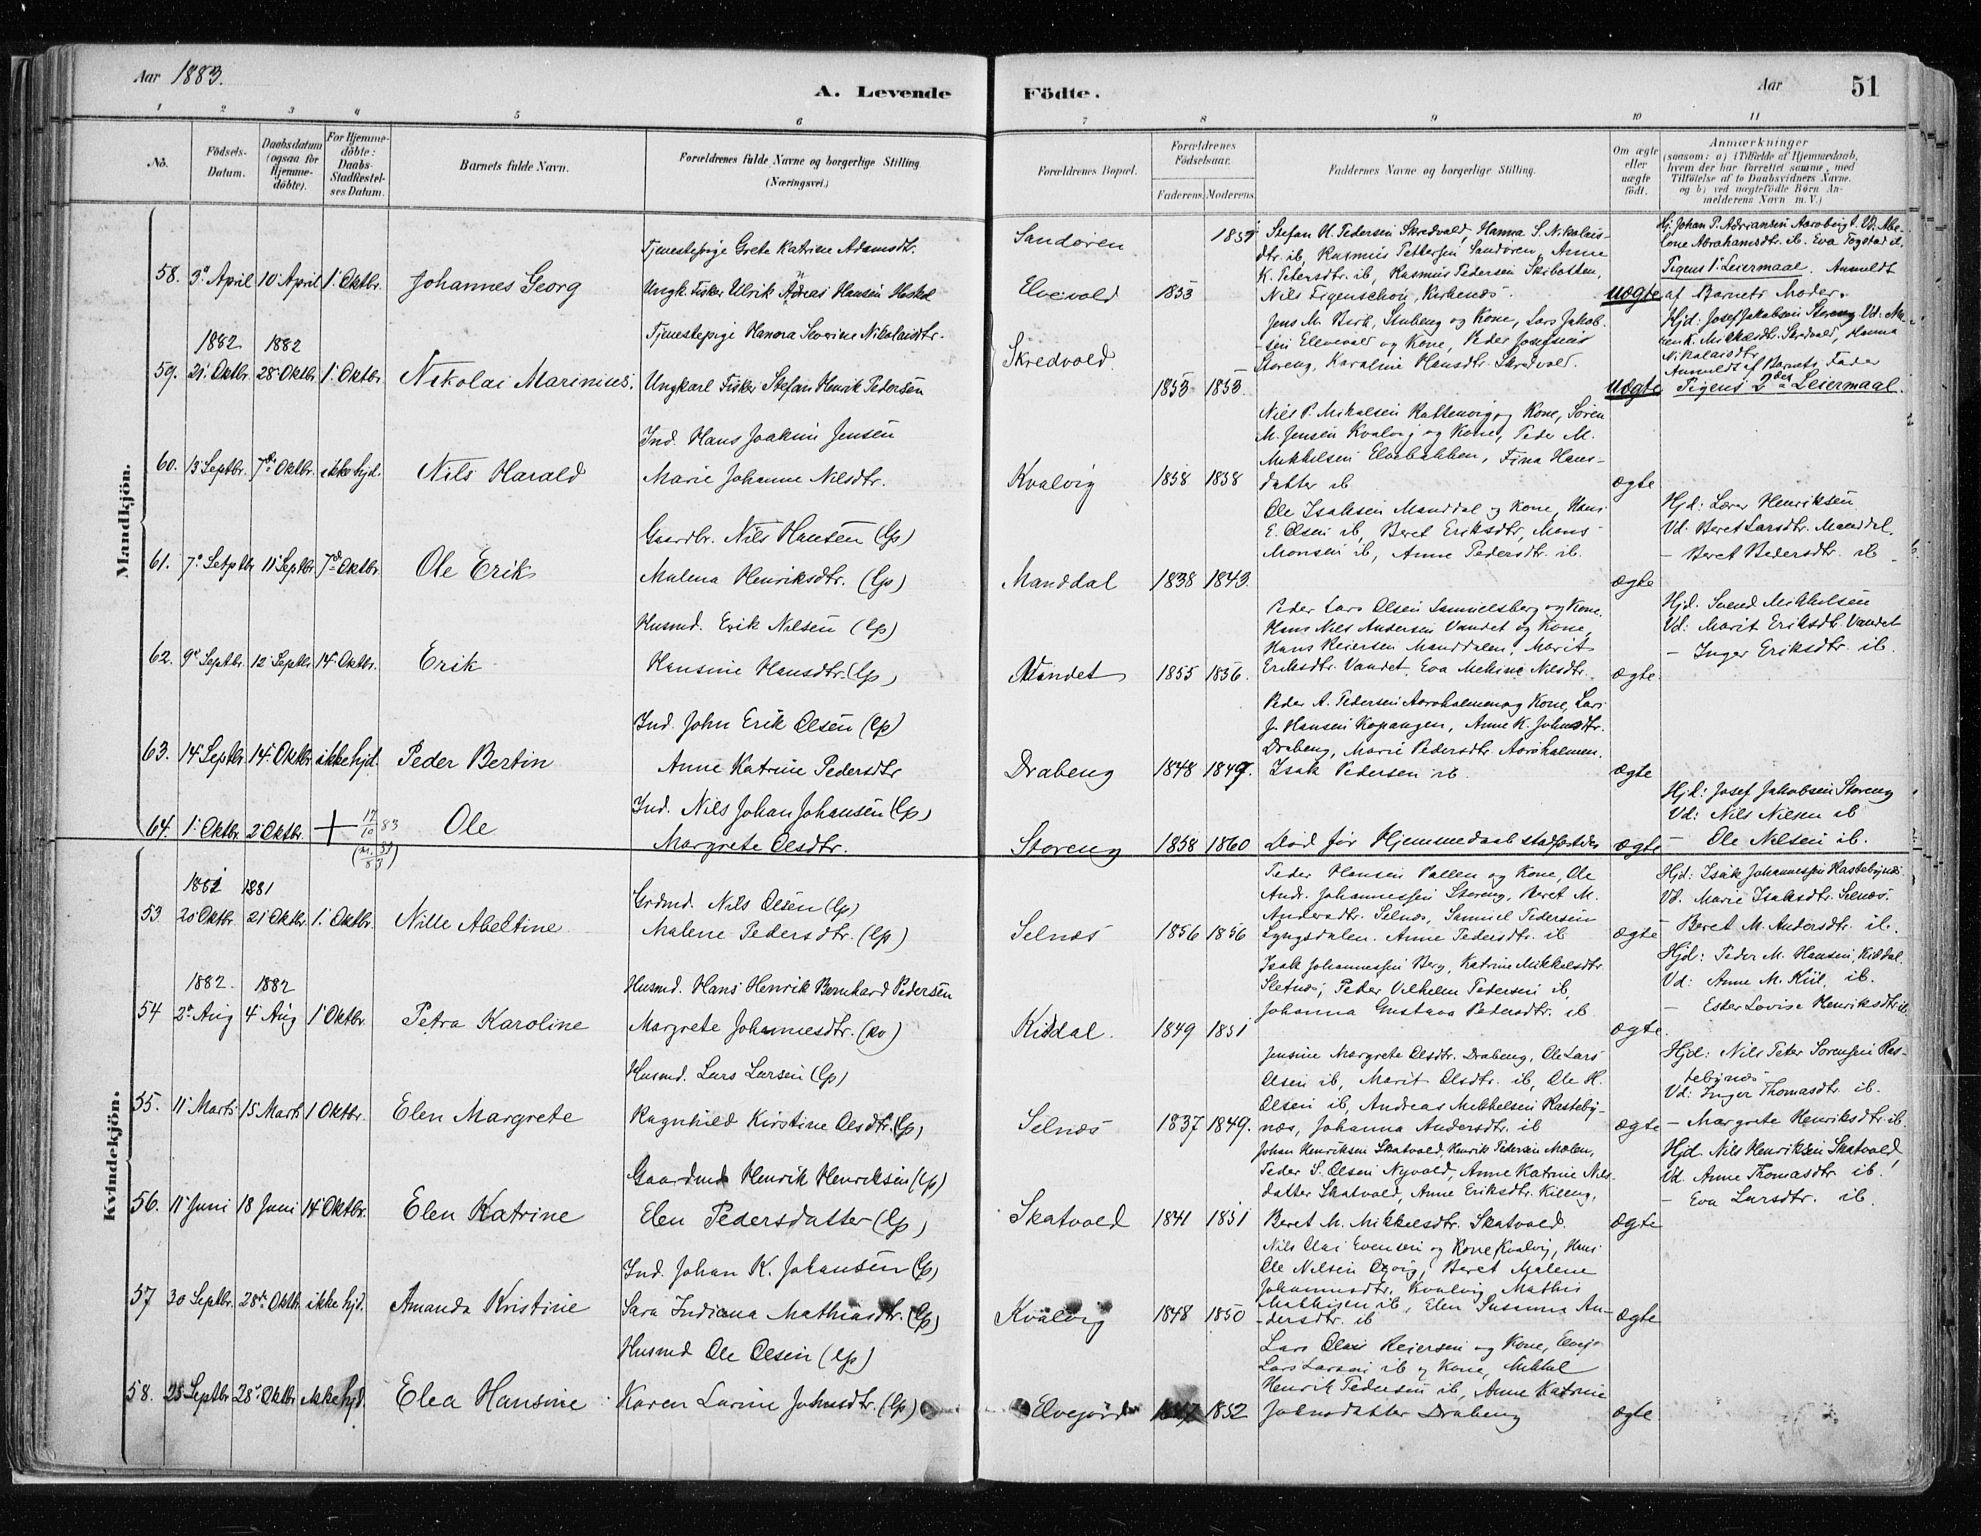 Aar 1883.
A. Levende
Födte.
Aar
51
1 2 3 4 5 6
7 8 9 10 11
No.
Födsels-Datum.
Daabsdatum (ogsaa for Hjemme-döbte).
For Hjemme-döbte: Daabs-Stadfæstel-ses Datum.
Barnets fulde Navn.
Forældrenes fulde Navne og borgerlige Stilling (Næringsvei.)
Forældrenes Bopæl.
Forældrenes Födselsaar.
Faderens. Moderens.
Faddernes Navne og borgerlige Stilling.
Om ægte eller uægte födt.
Anmærkninger
(saasom: a) i Tilfælde af Hjemmedaab,
hvem der har forrettet samme, med
Tilföielse af to Daabsvidners Navne.
og b) ved uægtefödte Börn An-
melderens Navn m. V.)
Mandkjön.
Tjenestepige Grete Katrine Adamsdtr.
58. 3' April 10 April 1' Oktbr. Johannes Georg
Ungk. Fisker Ulrik Andreas Hansen
Sandören 1857
Elvevold 1853
Stefan H. Pedersen Skredvold, Hanna S. Nikolais-
dtr. ib, Rasmus Pettersen Sandören, Anne
K. Petersdtr. ib, Rasmus Pedersen Skibotten,
Nils Figenschou, Kirkenæs.
uægte
Hj: Johan P. Adriansen Aaröbugt. Vd: Abe-
lone Abrahamsdtr. ib. Eva Fogstad ib,
Pigens 1' Leiermaal. Anmeldt
af Barnets Moder.
Tjenestepige Hanora Severine Nikolaisdtr.
1882 1882
59. 21' Oktbr. 28' Oktbr. 1' Oktbr. Nikolai Marinius.
Ungkarl Fisker Stefan Henrik Pedersen
Skredvold.
1853 1853.
Jens M. Berk, Lenbeng og Kone, Lars Jakob-
sen Elvevold og Kone, Peder Josefsen
Storeng, Karoline Hansdtr. Skredvold.
Uægte
Hjd: Josef Jakobsen Storeng Vd: Ma-
ren K. Mikkelsdtr. Skredvold, Hanna
Nikolaisdtr.
Anmeldt af Barnets Fader
Pigens 2det Leiermaal.
Ind. Hans Joakim Jensen
60. 13 Septbr. 7de Oktbr. ikke hjd. Nils Harald
Marie Johanne Nilsdtr.
Kvalvig 1858 1858
Nils P. Mikalsen Rattenvig og Kone, Sören
M. Jensen Kvalvig og Kone, Peder M.
Mikkelsen Elvebakken, Fina Hans-
datter ib
ægte
Gaardbr. Nils Hansen (Lp)
61. 7' Setptbr 11 Septbr 7de Oktbr. Ole Erik
Malena Henriksdtr. (Lp)
Manddal 1838 1843.
Ole Isaksen Manddal og Kone, Hans
E. Olsen ib, Beret Eriksdtr, Mons
Monsen ib, Anne Pedersdtr. ib.
ægte
Hjd: Lærer Henriksen
Vd: Beret Larsdtr. Manddal.
- Beret Pedersdtr. ib
Husmd. Erik Nilsen (Lp)
62. 9' Septbr. 12' Septbr. 14' Oktbr. Erik
Hansine Hansdtr. (Lp)
Vandet 1855 1856.
Peder Lars Olsen Samuelsberg og Kone.
Hans Nils Andersen Vandet og Kone,
Hans Reiersen Manddalen, Marit
Eriksdtr. Vandet, Eva Mekine Nilsdtr.
ægte.
Hjd. Svend Mikkelsen
Vd: Marit Eriksdtr. Vandet
- Inger Eriksdtr. ib.
Ind. John Erik Olsen (Lp)
63. 14' Septbr. 14' Oktbr. ikke hjd. Peder Bertin
Anne Katrine Pedersdtr
Drabeng 1848 1849.
Peder A. Pedersen Aaroholmen og Kone, Lars
J. Hansen Kopangen, Anne K. Johnsdtr.
Drabeng, Marie Pedersdtr. Aaröholmen,
Isak Pedersen ib.
ægte
Ind. Nils Johan Johansen (Lp)
64. 1' Oktbr. 2' Oktbr. + 17/10 83 Ole
Margrete Olsdtr.
Storeng 1858 1860
Död för Hjemmedaab stadfæstedes
ægte
Hjd: Josef Jakobsen Storeng
Vd: Nils Nilsen ib
- Ole Nilsen ib.
Kvindekjön.
1881 1881
Grdmd. Nils Olsen (Lp)
53 20' Oktbr. 21' Oktbr. 1' Oktbr. Nille Abeltine
Malene Pedersdtr. (Lp)
Selnæs 1856 1856
Peder Hansen Pollen og Kone, Ole
Andr. Johannessen Storeng, Beret M.
Andersdtr. Selnæs, Samuel Pedersen
Lyngsdalen. Anne Pedersdtr. ib
ægte
Hjd: Isak Johannessen Rastebynæs
Vd. Marie Isaksdtr. Selnæs.
- Beret M. Andersdtr. ib.
1882. 1882
Husmd. Hans Henrik Bernhard Pedersen
54 2' Aug 4' Aug 1' Oktbr. Petra Karoline
Margrete Johannesdtr. (kv)
Kiddal. 1849 1851
Isak Johannessen Berg, Katrine Mikkelsdtr
Sletnæs, Peder Vilhelm Pedersen ib,
Johanna Gustava Pedersdtr. ib
ægte.
Hjd: Peder M. Hansen, Kiddal.
Vd: Anne M. Kiil, ib.
- Ester Lovise Henriksdtr. ib.
Husmd. Lars Larsen (Lp)
55. 11' Marts 15 Marts 1 Oktbr. Elen Margrete
Ragnhild Kirstine Olsdtr. (Lp)
Selnæs 1837 1849.
Jensine Margrete Olsdtr. Drabeng, Ole Lars
Olsen ib, Marit Olsdtr. ib, Ole H.
Olsen ib, Andreas Mikkelsen Rasteby-
næs, Johanna Andersdtr. ib
ægte
Hjd: Nils Peter Sörensen Ras-
tebynæs
Vd: Inger Thomasdtr. ib.
- Margrete Henriksdtr. ib.
Gaardmd Henrik Henriksen (Lp)
56. 11' Juni 18 Juni 14' Oktbr. Elen Katrine
Elen Pedersdatter (Lp)
Skatvold 1841 1851
Johan Henriksen Skatvold, Henrik Pedersen Molen,
Peder S. Olsen Nyvold, Anne Katrine Nils-
datter Skatvold, Anne Eriksdtr. Kileng,
Beret M. Mikkelsdtr. Skatvold.
ægte
Hjd Nils Henriksen Skatvold
Vd. Anne Thomasdtr ib.
- Eva Larsdtr. ib.
Ind. Johan K. Johansen (Lp)
57 30 Septbr. 28de Oktbr. ikke hjd. Amanda Kristine
Sara Indiana Mathiasdtr. (Lp)
Kvalvig 1848 1850
Nils Olai Evensen og Kone Kvalvig, Hans
Ole Nilsen Olvig, Beret Malene
Johannesdtr. Kvalvig Mathis
Mathisen ib, Elen Susanna An-
dersdtr. ib
ægte
Husmd Ole Olsen (Lp)
58. 25 Septbr 28' Oktbr ikke hjd. Elea Hansine
Karen Larine Johnsdtr. (Lp)
Elvejord 1852
Lars Olai Reiersen og Kone,
Lars Larsen ib og Kone, Mikkel
Henrik Pedersen ib, Anne Katrine
Johnsdatter Drabeng
ægte